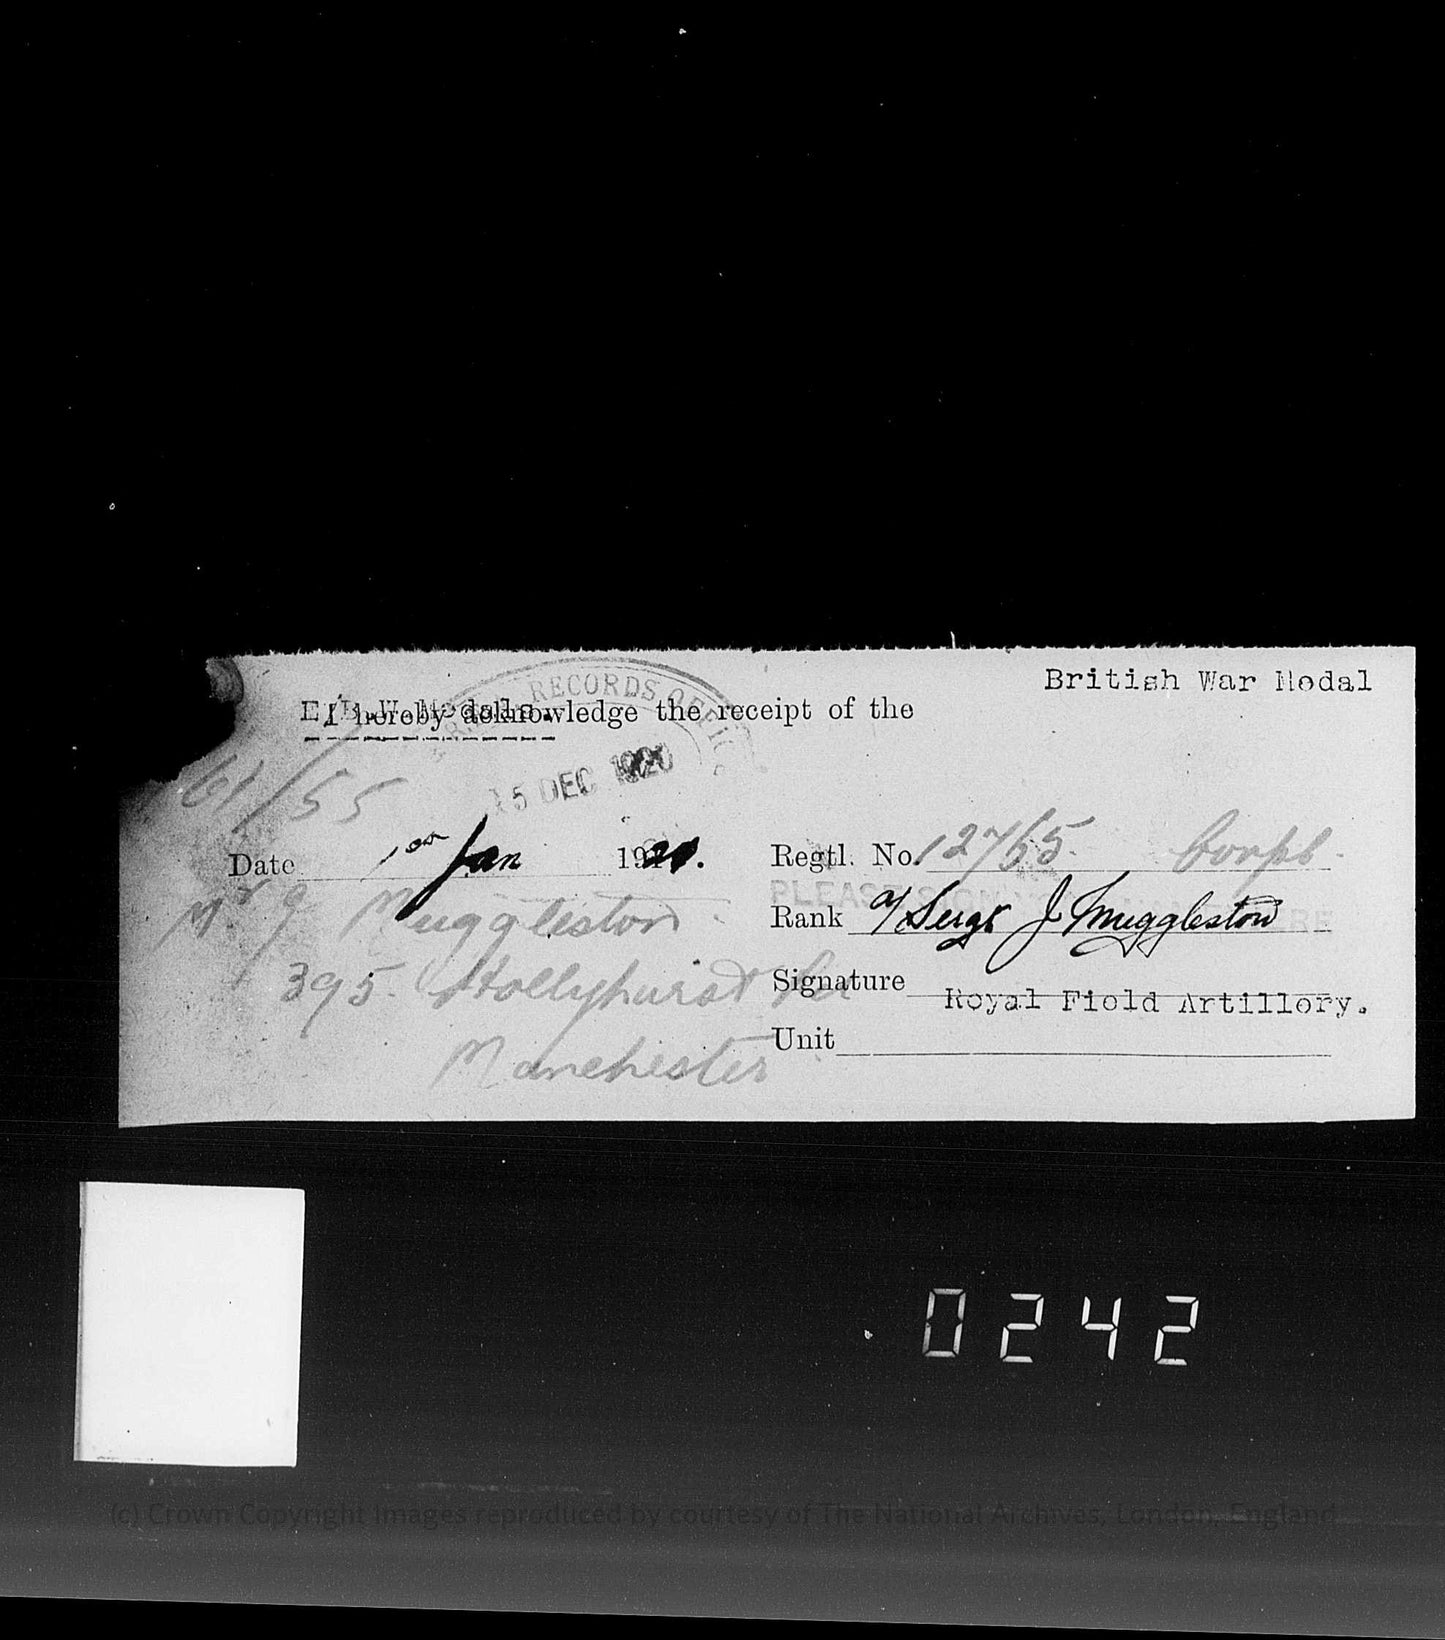 British War Medal
E/B.W. Medals.
I hereby acknowledge the receipt of the
RECORDS OFFICE
15 DEC 1920
61/55
Date 1st Jan 1921.
Regtl. No. 12765. Corpl.
PLEASE SIGN
Mr J Muggleston
Rank A/Sergt J Muggleston
395 Hollyhurst
Signature
Royal Field Artillery.
Manchester
Unit
0242
(c) Crown Copyright Images reproduced by courtesy of The National Archives, London, England